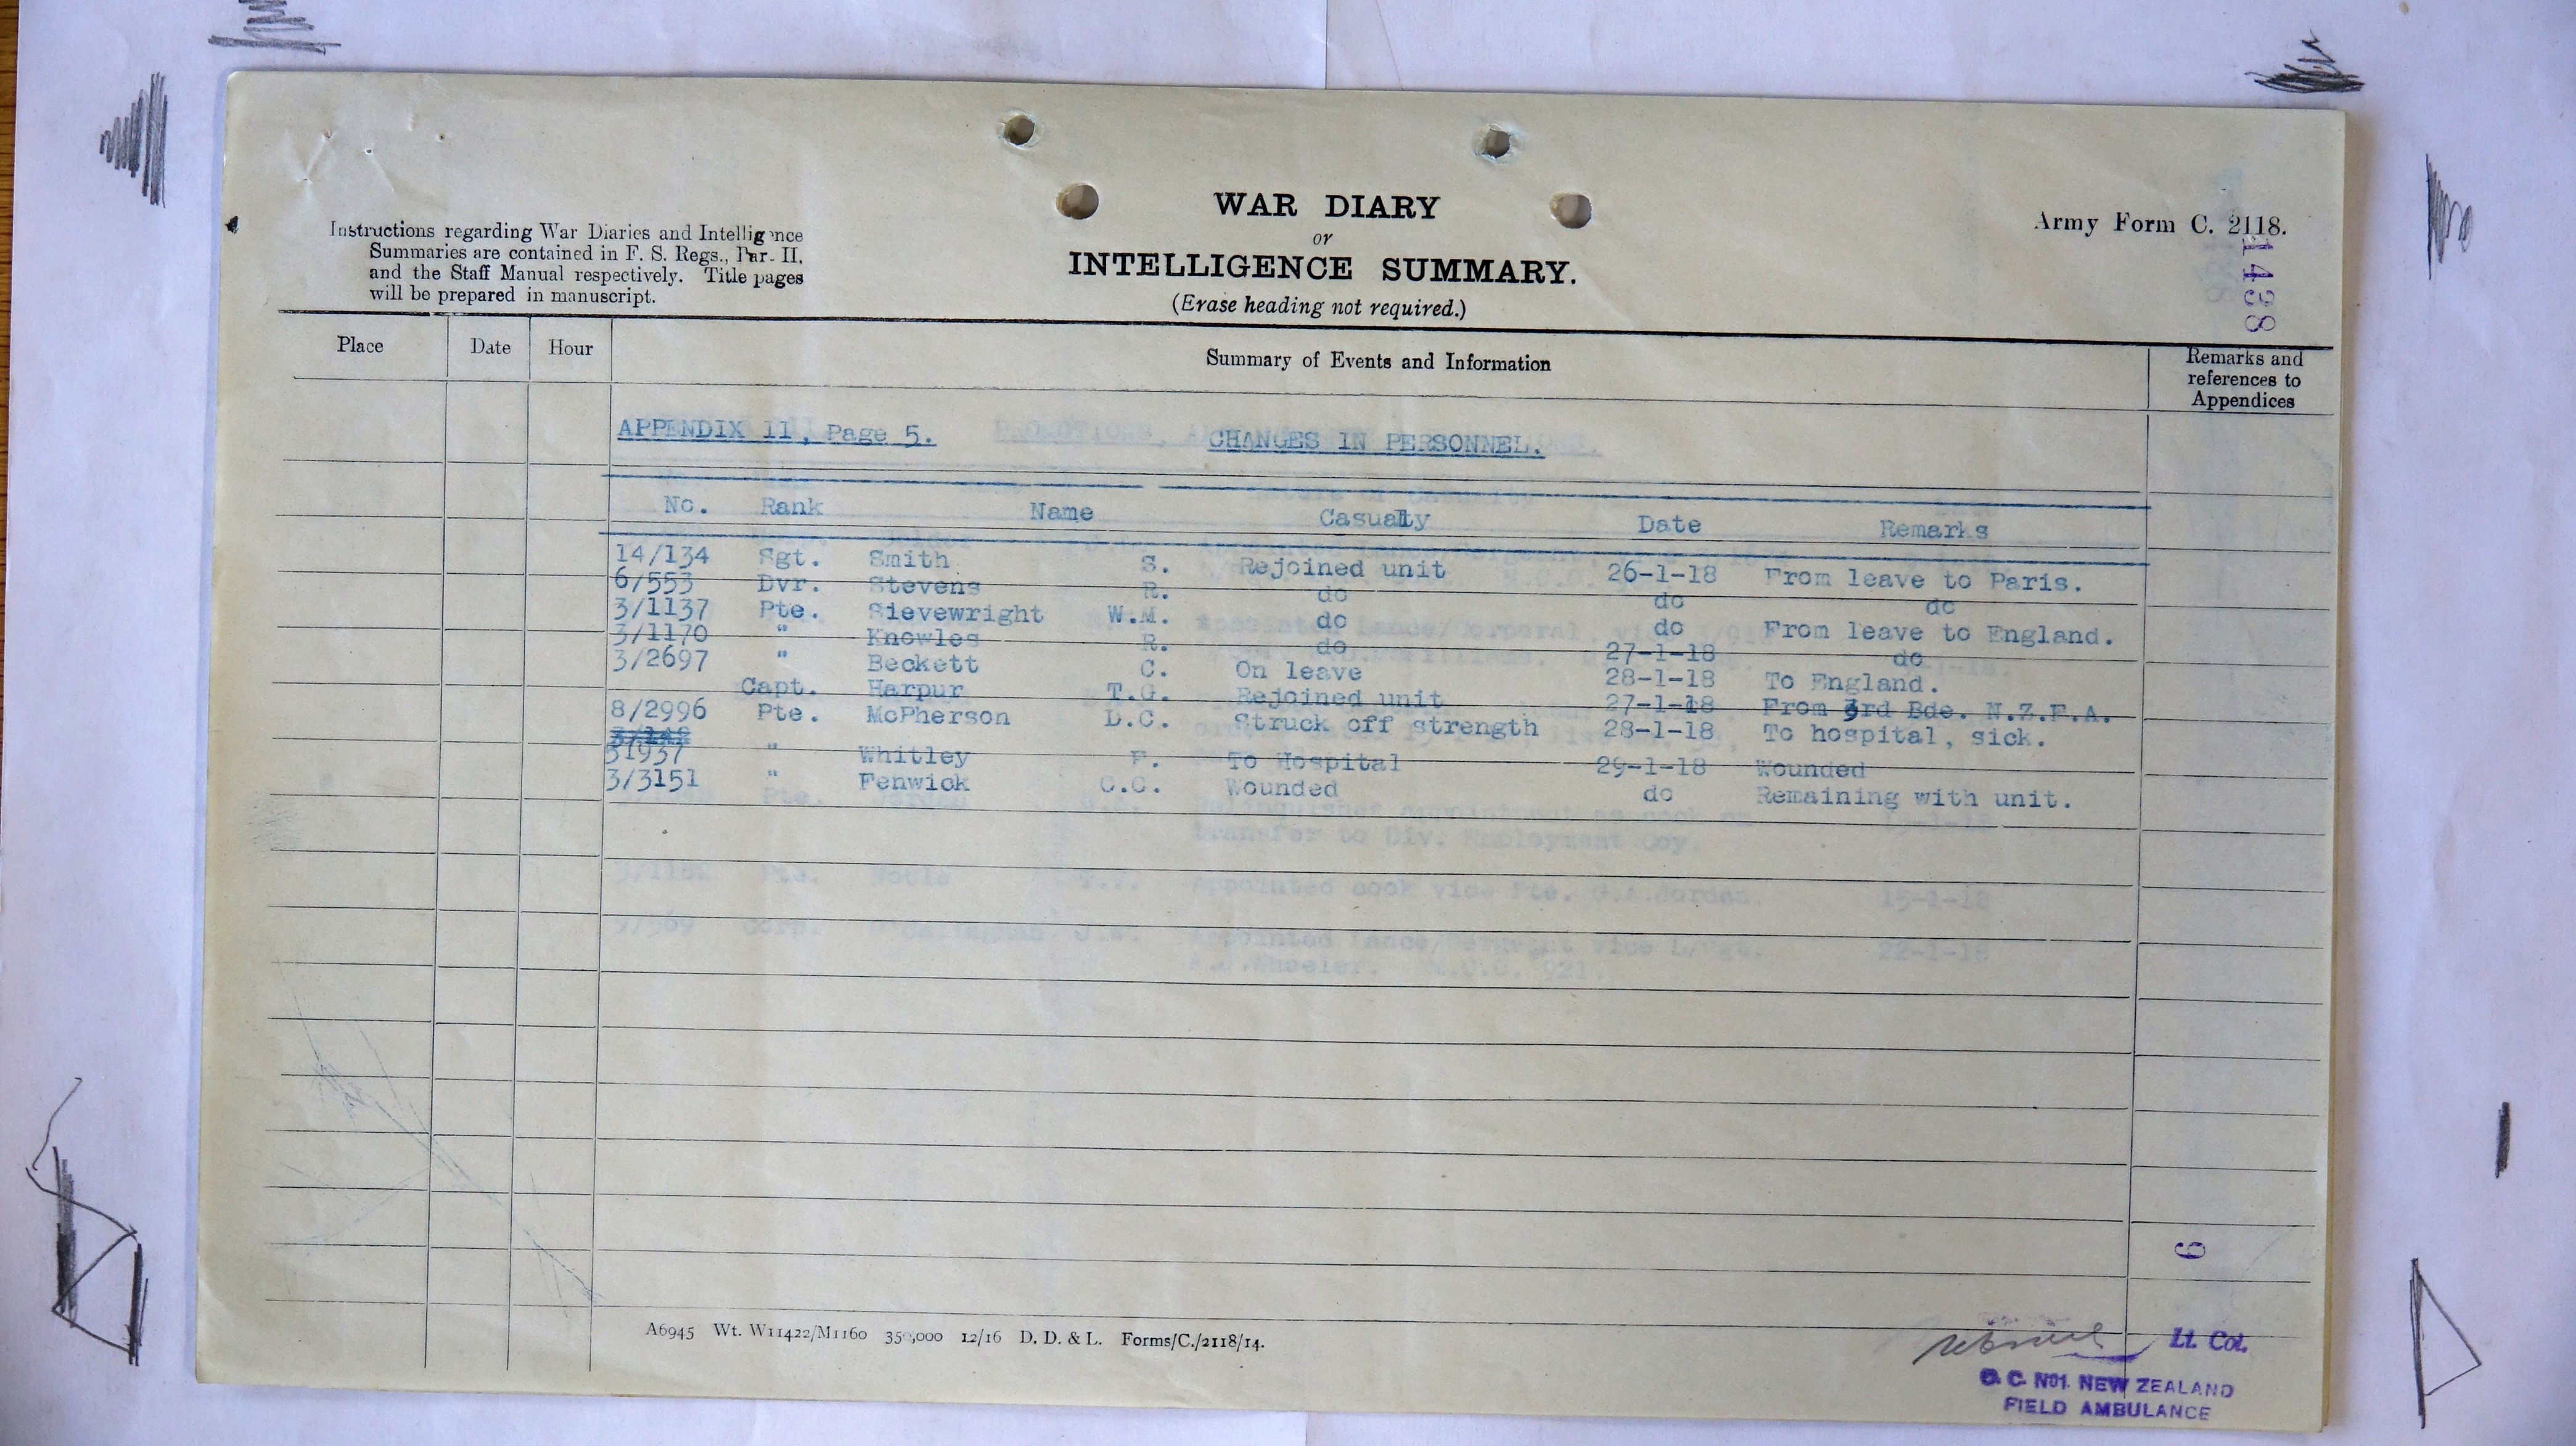 Instructions regarding War Diaries and Intelligence
Summaries are contained in F. S. Regs., Par. II.
and the Staff Manual respectively. Title pages
will be prepared in manuscript.
WAR DIARY
or
INTELLIGENCE SUMMARY.
(Erase heading not required.)
Army Form C. 2118.
1438
Place Date Hour Summary of Events and Information Remarks and references to Appendices
APPENDIX 11, Page 5. CHANGES IN PERSONNEL.
No. Rank Name Casualty Date Remarks
14/134 Sgt. Smith S. Rejoined unit 26-1-18 From leave to Paris.
6/553 Dvr. Stevens R. do do do
3/1137 Pte. Sievewright W.M. do do From leave to England.
3/1170 " Knowles R. do 27-1-18 do
3/2697 " Beckett C. On leave 28-1-18 To England.
Capt. Harpur T.G. Rejoined unit 27-1-18 From 3rd Bde. N.Z.F.A.
8/2996 Pte. McPherson D.C. Struck off strength 28-1-18 To hospital, sick.
51937 " Whitley F. To Hospital 29-1-18 Wounded
3/3151 " Fenwick C.C. Wounded do Remaining with unit.
6
A6945 Wt. W11422/M1160 350,000 12/16 D. D. & L. Forms/C./2118/14.
Lt. Col.
O. C. No1. NEW ZEALAND
FIELD AMBULANCE